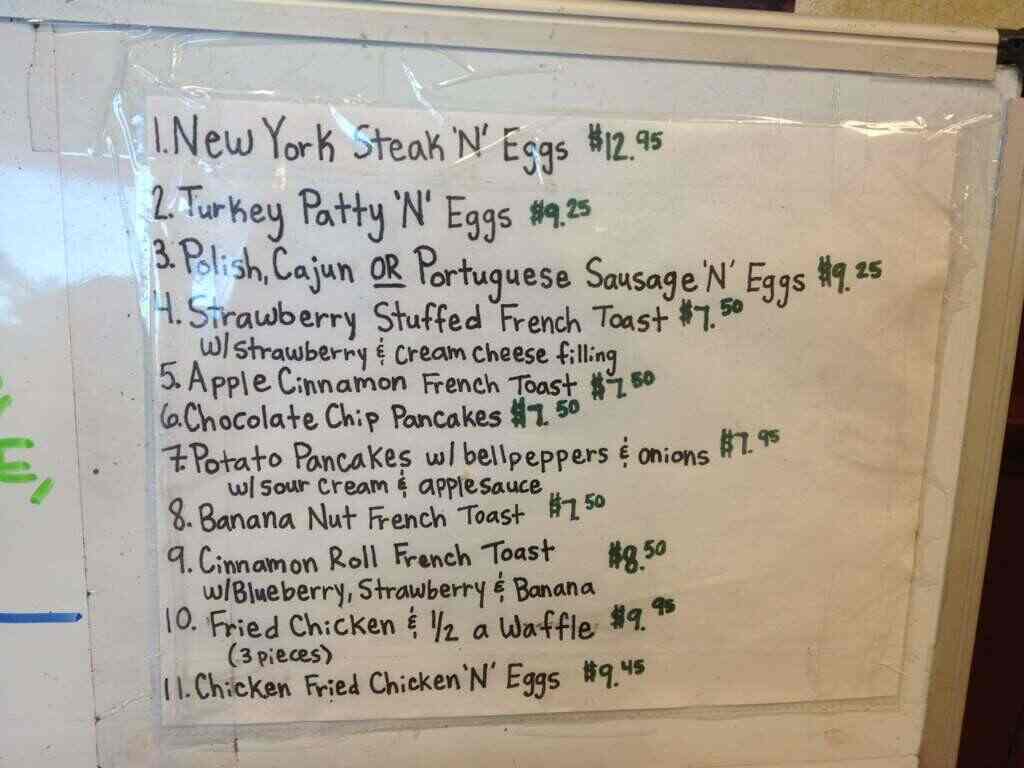 1. New York Steak 'N' Eggs $12.95
2. Turkey Patty 'N' Eggs $9.25
3. Polish, Cajun OR Portuguese Sausage 'N' Eggs $9.25
4. Strawberry Stuffed French Toast $7.50
w/strawberry & cream cheese filling
5. Apple Cinnamon French Toast $7.50
6. Chocolate Chip Pancakes $7.50
7. Potato Pancakes w/ bellpeppers & onions $7.95
w/ sour cream & applesauce
8. Banana Nut French Toast $7.50
9. Cinnamon Roll French Toast $8.50
w/Blueberry, Strawberry & Banana
10. Fried Chicken & 1/2 a Waffle $9.95
(3 pieces)
11. Chicken Fried Chicken 'N' Eggs $9.45